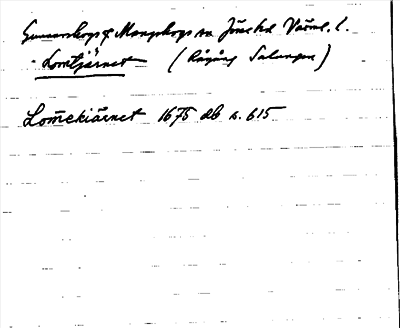 Gunnarskogs & Mangskogs sn Jösse hd Värml. l.
- Lomtjärnet (Rågång Salungen)
Lom̄ekiärnet 1675 db s. 615